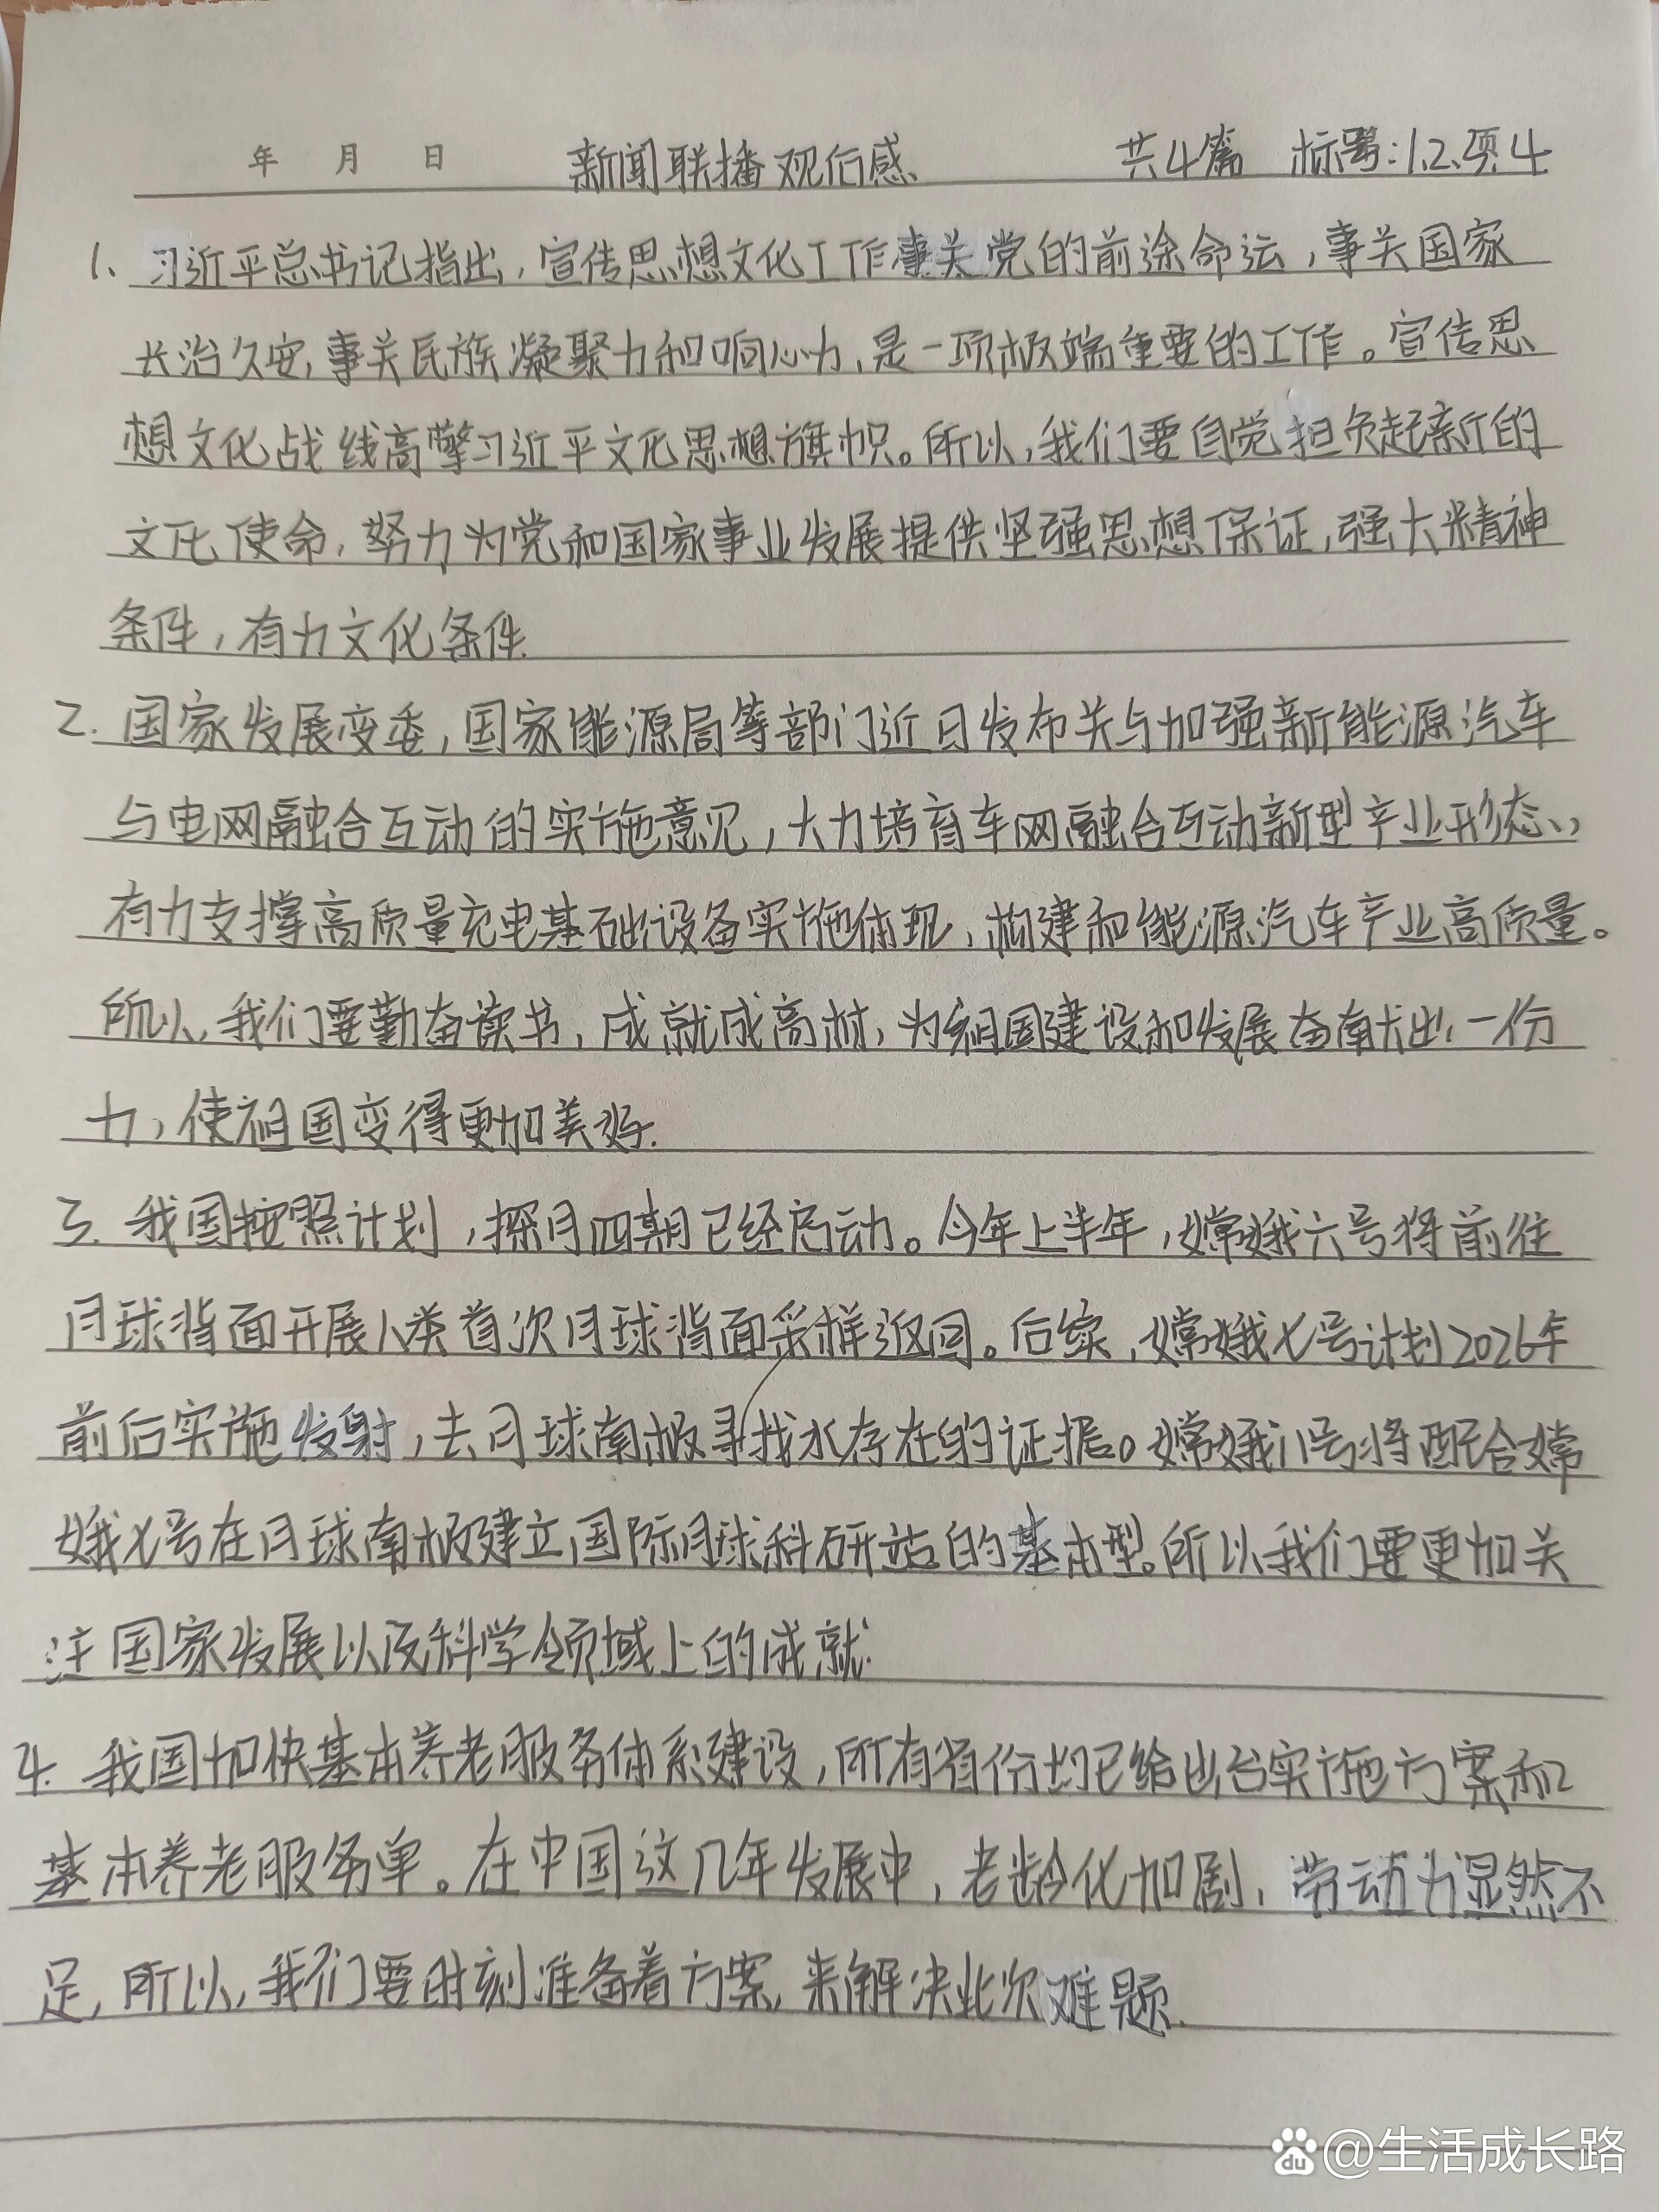 年 月 日 新闻联播观后感 共4篇 标号:1.2.项.4
1、习近平总书记指出,宣传思想文化工作事关党的前途命运,事关国家
长治久安,事关民族凝聚力和响心力,是一项极端重要的工作。宣传思
想文化战线高擎习近平文化思想旗帜。所以,我们要自觉担负起新的
文化使命,努力为党和国家事业发展提供坚强思想保证,强大精神
条件,有力文化条件.
2.国家发展变委,国家能源局等部门近日发布关与加强新能源汽车
与电网融合互动的实施意见,大力培育车网融合互动新型产业形态,
有力支撑高质量充电基础设备实施体现,构建和能源汽车产业高质量。
所以,我们要勤奋读书,成就成高材,为祖国建设和发展奋献出一份
力,使祖国变得更加美好.
3.我国按照计划,探月四期已经启动。今年上半年,嫦娥六号将前往
月球背面开展人类首次月球背面采样返回。后续,嫦娥七号计划2026年
前后实施发射,去月球南极寻找水存在的证据。嫦娥八号将配合嫦
娥七号在月球南极建立国际月球科研站的基本型。所以我们要更加关
注国家发展以及科学领域上的成就.
4.我国加快基本养老服务体系建设,所有省份均已给出台实施方案和
基本养老服务单。在中国这几年发展中,老龄化加剧,劳动力显然不
足,所以,我们要时刻准备着方案,来解决此次难题.
@生活成长路